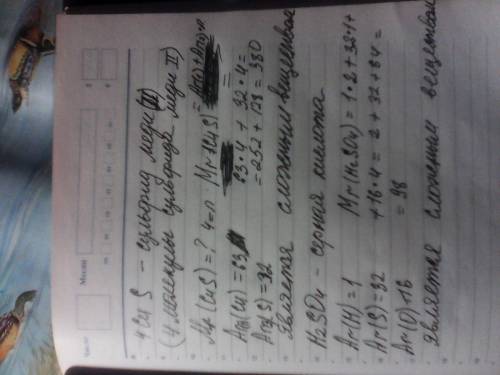 Число
Месяц
4CuS – сульфид меди (II)
(4 молекулы сульфида меди II)
Mr (CuS) = ? 4 = n Mr (4CuS) = Ar(Cu) + Ar(S)·4
Ar(Cu) = 63 63·4 + 32·4 =
Ar(S) = 32 = 252 + 128 = 380
Является сложным веществом
H2SO4 – серная кислота
Ar(H) = 1 Mr (H2SO4) = 1·2 + 32·1 +
Ar(S) = 32 + 16·4 = 2 + 32 + 64 =
Ar(O) = 16 = 98
Является сложным веществом